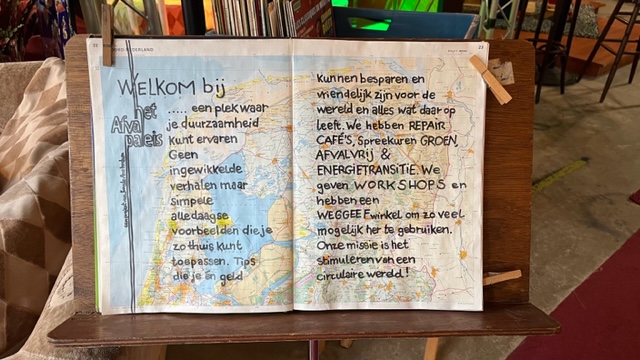 WELKOM bij
het
Afval
paleis
..... een plek waar
je duurzaamheid
kunt ervaren
Geen
ingewikkelde
verhalen maar
simpele
alledaagse
voorbeelden die je
zo thuis kunt
toepassen. Tips
die je én geld
Kunnen besparen en
vriendelijk zijn voor de
wereld en alles wat daar op
leeft. We hebben REPAIR
CAFÉ'S, Spreekuren GROEN,
AFVALVRIJ &
ENERGIETRANSITIE. We
geven WORKSHOPS en
hebben een
WEGGEEFwinkel om zo veel
mogelijk her te gebruiken.
Onze missie is het
stimuleren van een
circulaire wereld!